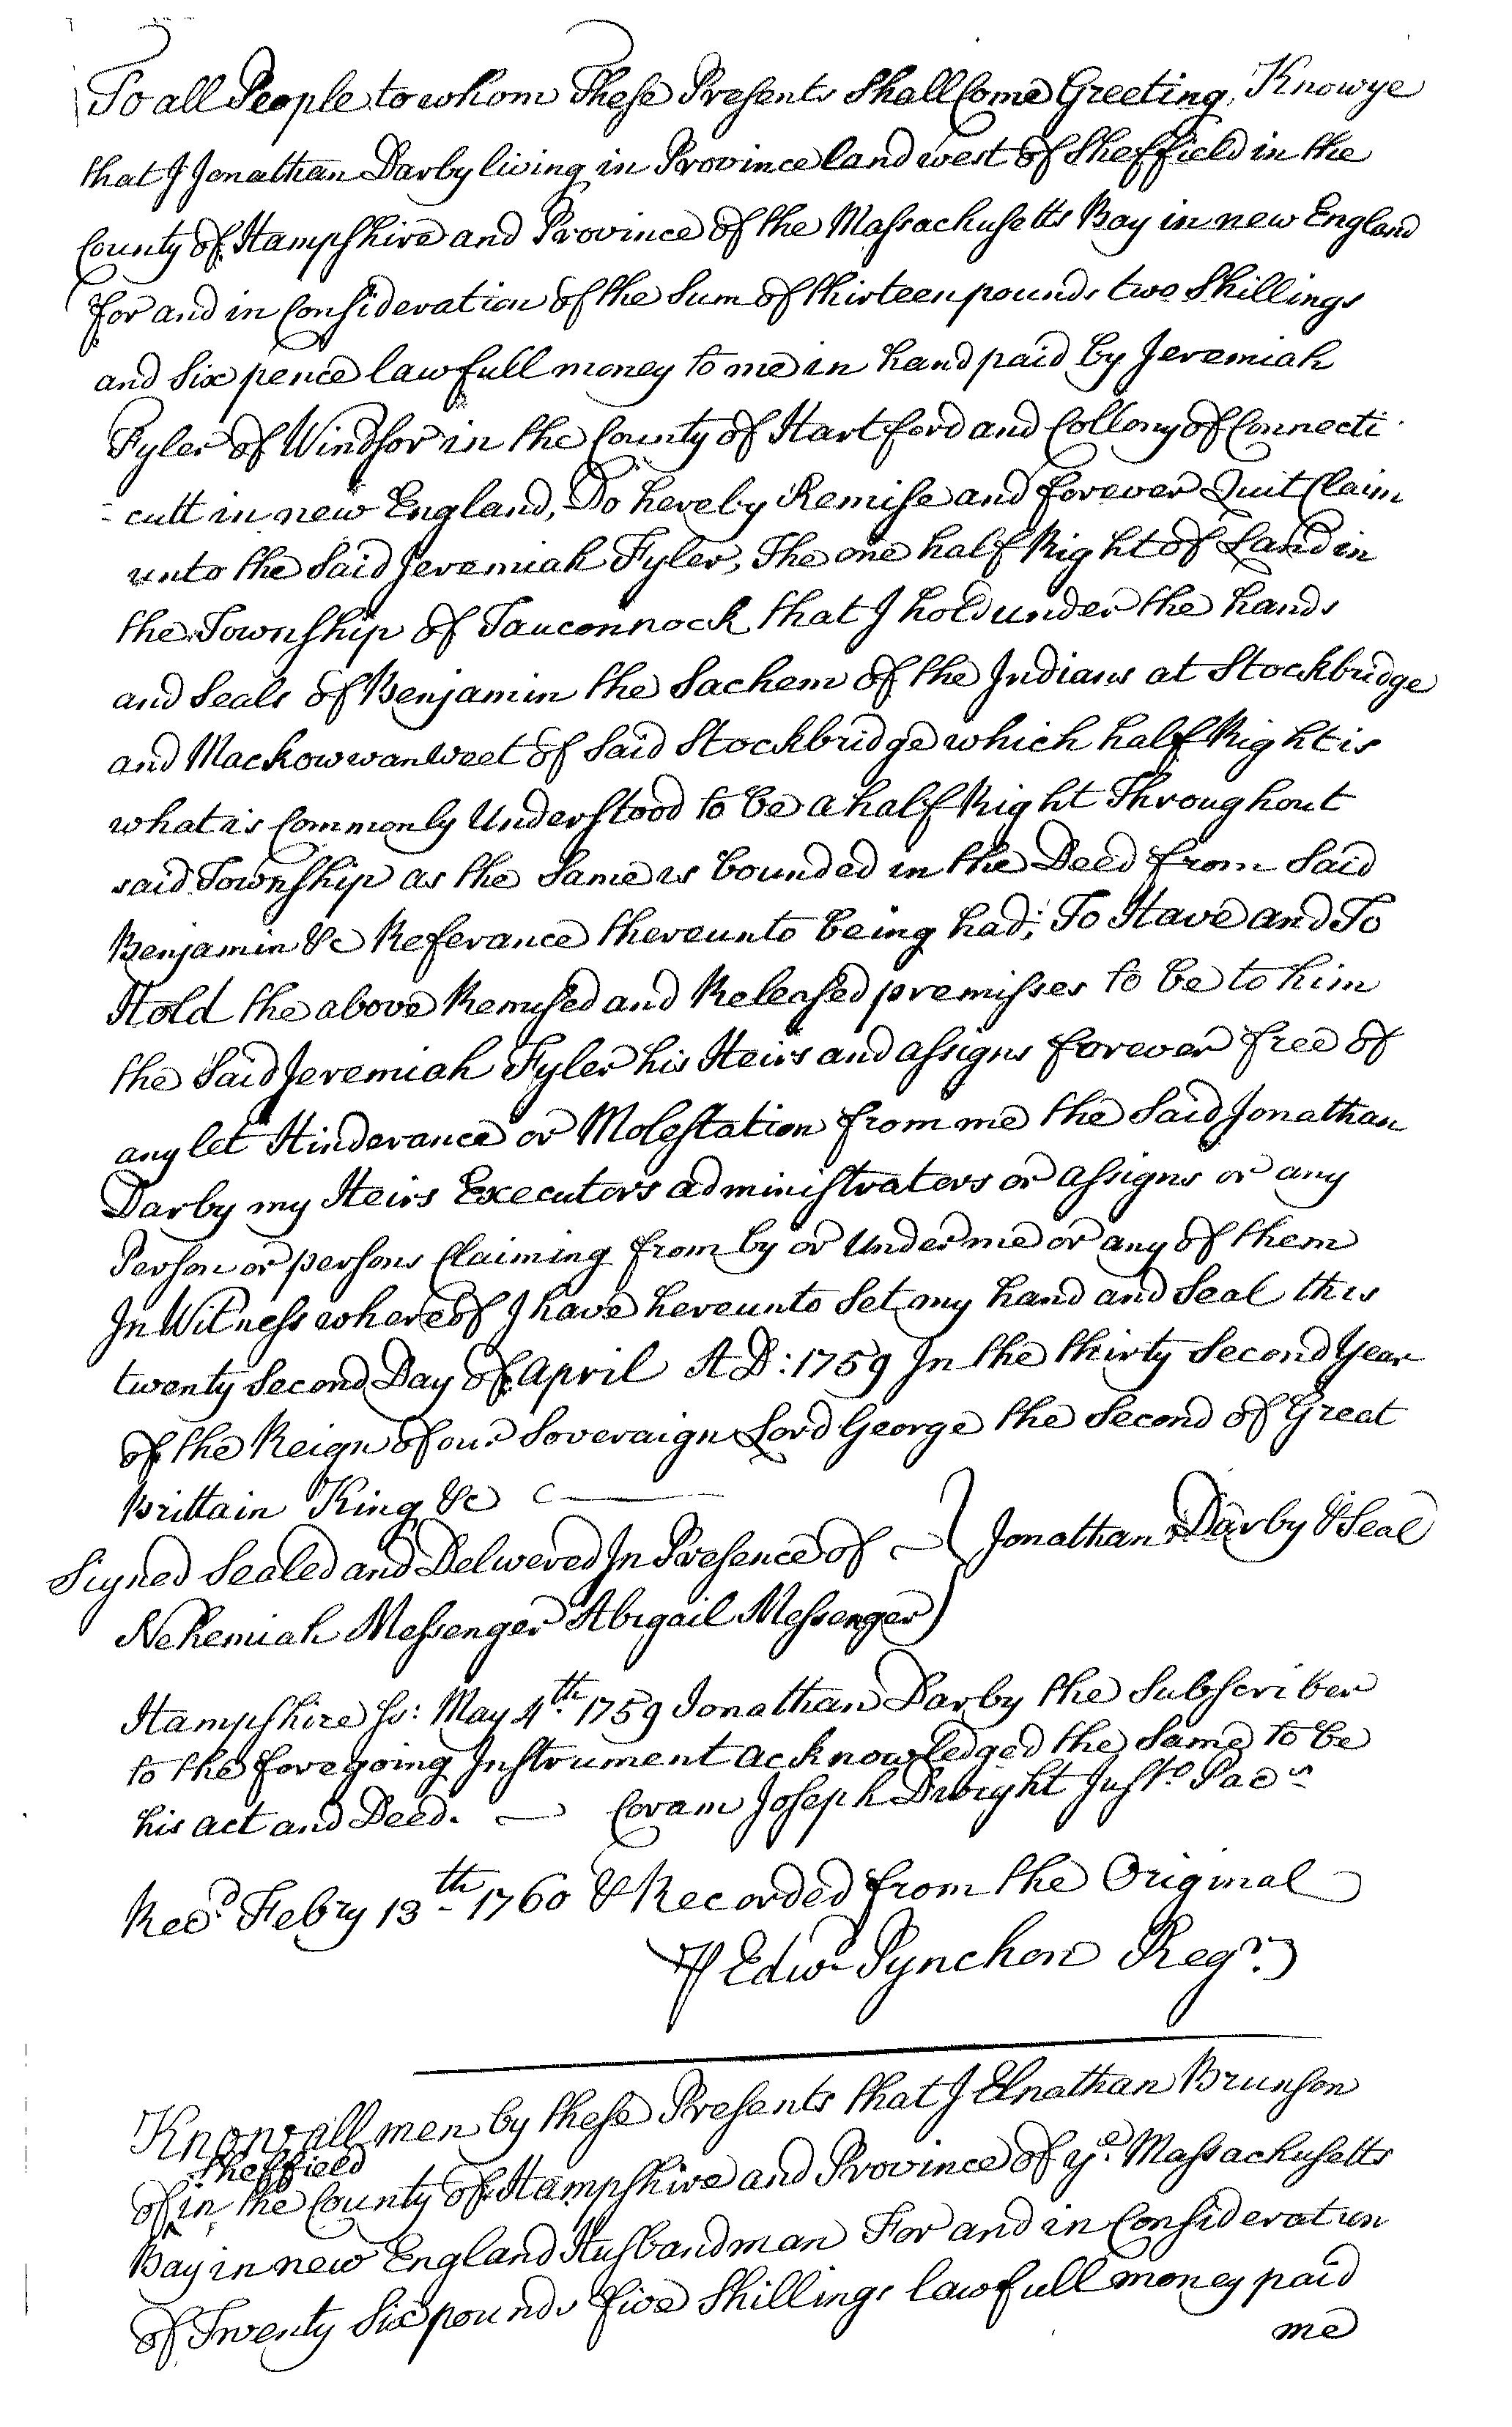 To all People to whom These Presents Shall Come Greeting, Know ye
that I Jonathan Darby living in Province land west of Sheffield in the
County of Hampshire and Province of the Massachusetts Bay in new England
for and in Consideration of the Sum of thirteen pounds two Shillings
and Six pence lawfull money to me in hand paid by Jeremiah
Fyler of Windsor in the County of Hartford and Collony of Connecti
cutt in new England, Do hereby Remise and forever Quit Claim
unto the Said Jeremiah Fyler, The one half Right of Land in
the Township of Tauconnock that I hold under the hands
and Seals of Benjamin the Sachem of the Indians at Stockbridge
and Mackowwanweet of Said Stockbridge which half Right is
what is Commonly Understood to be a half Right Throughout
said Township as the Same is bounded in the Deed from Said
Benjamin &c Referance thereunto being had; To Have and To
Hold the above Remised and Released premisses to be to him
the Said Jeremiah Fyler his Heirs and assigns forever free of
any let Hinderance or Molestation from me the Said Jonathan
Darby my Heirs Executors administrators or assigns or any
Person or persons Claiming from by or Under me or any of them
In Witness whereof I have hereunto Set my hand and Seal this
twenty Second Day of April AD: 1759 In the thirty Second Year
of the Reign of our Soveraign Lord George the Second of Great
Brittain King &c
Signed Sealed and Delivered In Presence of } Jonathan Darby & Seal
Nehemiah Messenger Abigail Messenger
Hampshire Ss: May 4th 1759 Jonathan Darby the Subscriber
to the foregoing Instrument acknowledged the Same to be
his act and Deed. — Coram Joseph Dwight Justo Pacs
Recd Febry 13th 1760 & Recorded from the Original
⅌ Edwd Pynchon Regr.
Know all men by these Presents that I Elnathan Brunson
Sheffield
of ^ in the County of Hampshire and Province of ye Massachusetts
Bay in new England Husbandman For and in Consideration
of Twenty Six pounds five Shillings lawfull money paid
me